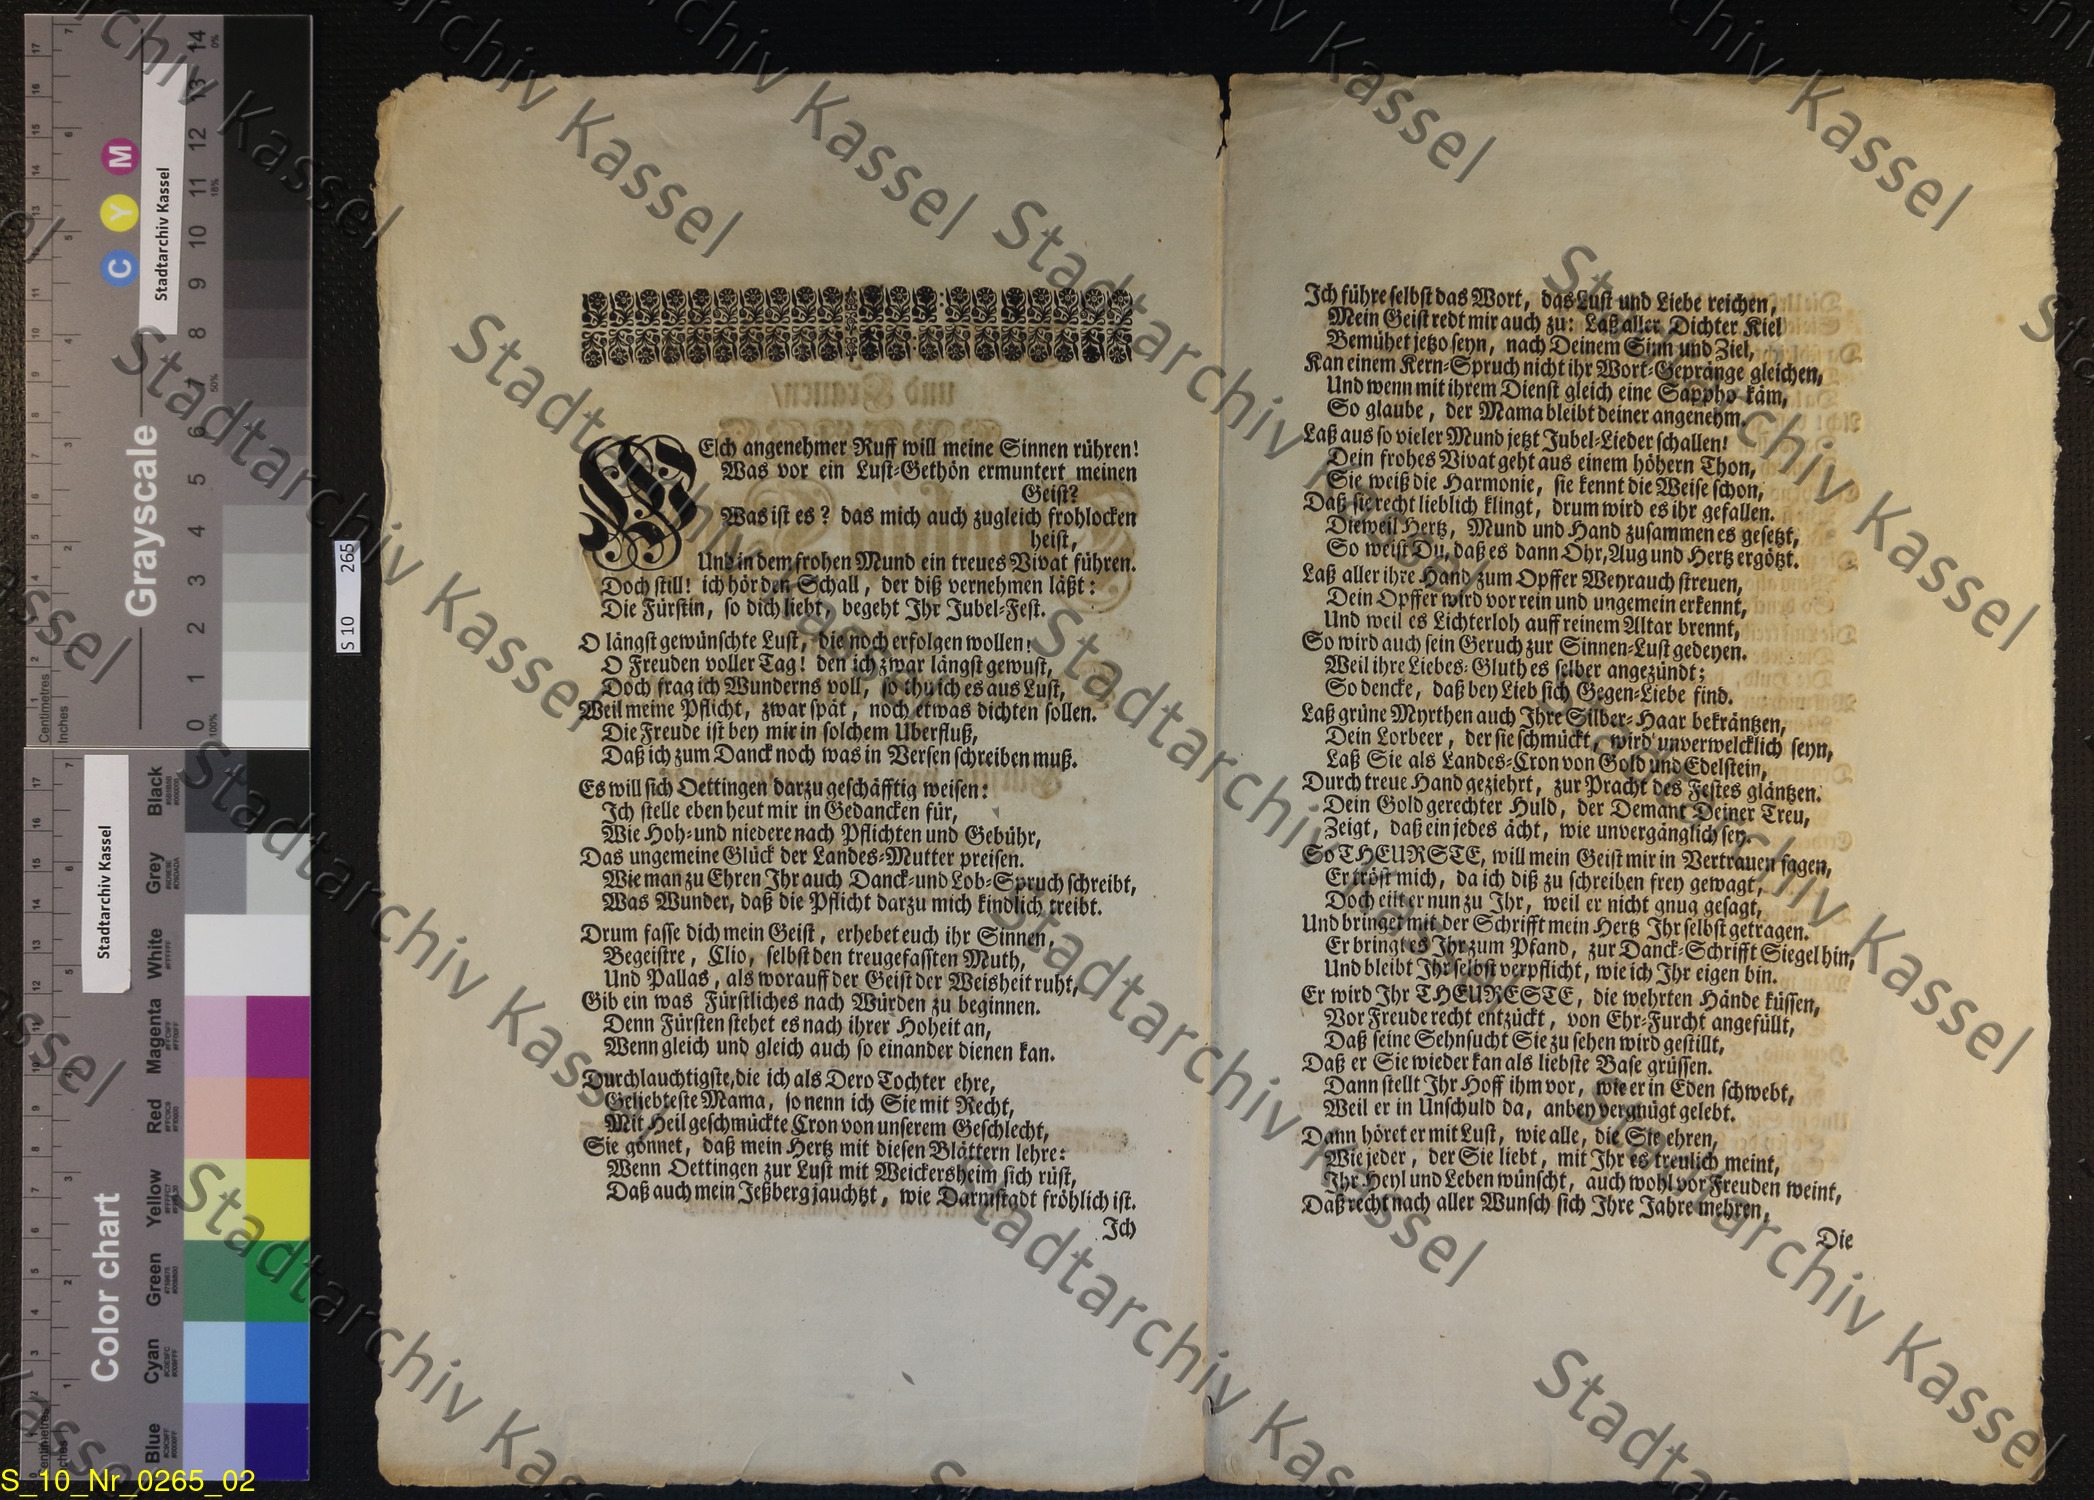 WElch angenehmer Ruff will meine Sinnen rühren!
Was vor ein Lust-Gethön ermuntert meinen
Geist?
Was ist es? das mich auch zugleich frohlocken
heist,
Und in dem frohen Mund ein treues Vivat führen.
Doch still! ich hör den Schall, der diß vernehmen läßt:
Die Fürstin, so dich liebt, begeht Ihr Jubel-Fest.
O längst gewünschte Lust, die noch erfolgen wollen!
O Freuden voller Tag! den ich zwar längst gewust,
Doch frag ich Wunderns voll, so thu ich es aus Lust,
Weil meine Pflicht, zwar spät, noch etwas dichten sollen.
Die Freude ist bey mir in solchem Uberfluß,
Daß ich zum Danck noch was in Versen schreiben muß.
Es will sich Oettingen darzu geschäfftig weisen:
Ich stelle eben heut mir in Gedancken für,
Wie Hoh- und niedere nach Pflichten und Gebühr,
Das ungemeine Glück der Landes-Mutter preisen.
Wie man zu Ehren Ihr auch Danck- und Lob-Spruch schreibt,
Was Wunder, daß die Pflicht darzu mich kindlich treibt.
Drum fasse dich mein Geist, erhebet euch ihr Sinnen,
Begeistre, Clio, selbst den treugefassten Muth,
Und Pallas, als worauff der Geist der Weisheit ruht,
Gib ein was Fürstliches nach Würden zu beginnen.
Denn Fürsten stehet es nach ihrer Hoheit an,
Wenn gleich und gleich auch so einander dienen kan.
Durchlauchtigste, die ich als Dero Tochter ehre,
Geliebteste Mama, so nenn ich Sie mit Recht,
Mit Heil geschmückte Cron von unserem Geschlecht,
Sie gönnet, daß mein Hertz mit diesen Blättern lehre:
Wenn Oettingen zur Lust mit Weickersheim sich rüst,
Daß auch mein Jeßberg jauchtzt, wie Darmstadt fröhlich ist.
Ich
Ich führe selbst das Wort, das Lust und Liebe reichen,
Mein Geist redt mir auch zu: Laß aller Dichter Kiel
Bemühet jetzo seyn, nach Deinem Sinn und Ziel,
Kan einem Kern-Spruch nicht ihr Wort-Gepränge gleichen,
Und wenn mit ihrem Dienst gleich eine Sappho käm,
So glaube, der Mama bleibt deiner angenehm.
Laß aus so vieler Mund jetzt Jubel-Lieder schallen!
Dein frohes Vivat geht aus einem höhern Thon,
Sie weiß die Harmonie, sie kennt die Weise schon,
Daß sie recht lieblich klingt, drum wird es ihr gefallen.
Dieweil Hertz, Mund und Hand zusammen es gesetzt,
So weist Du, daß es dann Ohr, Aug und Hertz ergötzt.
Laß aller ihre Hand zum Opffer Weyrauch streuen,
Dein Opffer wird vor rein und ungemein erkennt,
Und weil es Lichterloh auff reinem Altar brennt,
So wird auch sein Geruch zur Sinnen-Lust gedeyen.
Weil ihre Liebes-Gluth es selber angezündt;
So dencke, daß bey Lieb sich Gegen-Liebe find.
Laß grüne Myrthen auch Ihre Silber-Haar bekräntzen,
Dein Lorbeer, der sie schmückt, wird unverwelcklich seyn,
Laß Sie als Landes-Cron von Gold und Edelstein,
Durch treue Hand geziehrt, zur Pracht des Festes gläntzen.
Dein Gold gerechter Huld, der Demant Deiner Treu,
Zeigt, daß ein jedes ächt, wie unvergänglich sey.
So THEURSTE, will mein Geist mir in Vertrauen sagen,
Er tröst mich, da ich diß zu schreiben frey gewagt,
Doch eilt er nun zu Ihr, weil er nicht gnug gesagt,
Und bringet mit der Schrifft mein Hertz Ihr selbst getragen.
Er bringt es Ihr zum Pfand, zur Danck-Schrifft Siegel hin,
Und bleibt Ihr selbst verpflicht, wie ich Ihr eigen bin.
Er wird Ihr THEURESTE, die wehrten Hände küssen,
Vor Freude recht entzückt, von Ehr-Furcht angefüllt,
Daß seine Sehnsucht Sie zu sehen wird gestillt,
Daß er Sie wieder kan als liebste Base grüssen.
Dann stellt Ihr Hoff ihm vor, wie er in Eden schwebt,
Weil er in Unschuld da, anbey vergnügt gelebt.
Dann höret er mit Lust, wie alle, die Sie ehren,
Wie jeder, der Sie liebt, mit Ihr es treulich meint,
Ihr Heyl und Leben wünscht, auch wohl vor Freuden weint,
Daß recht nach aller Wunsch sich Ihre Jahre mehren,
Die
S 10 265
Stadtarchiv Kassel
Grayscale
Stadtarchiv Kassel
Color chart
Black
Grey
White
Magenta
Red
Yellow
Green
Cyan
Blue
S_10_Nr_0265_02